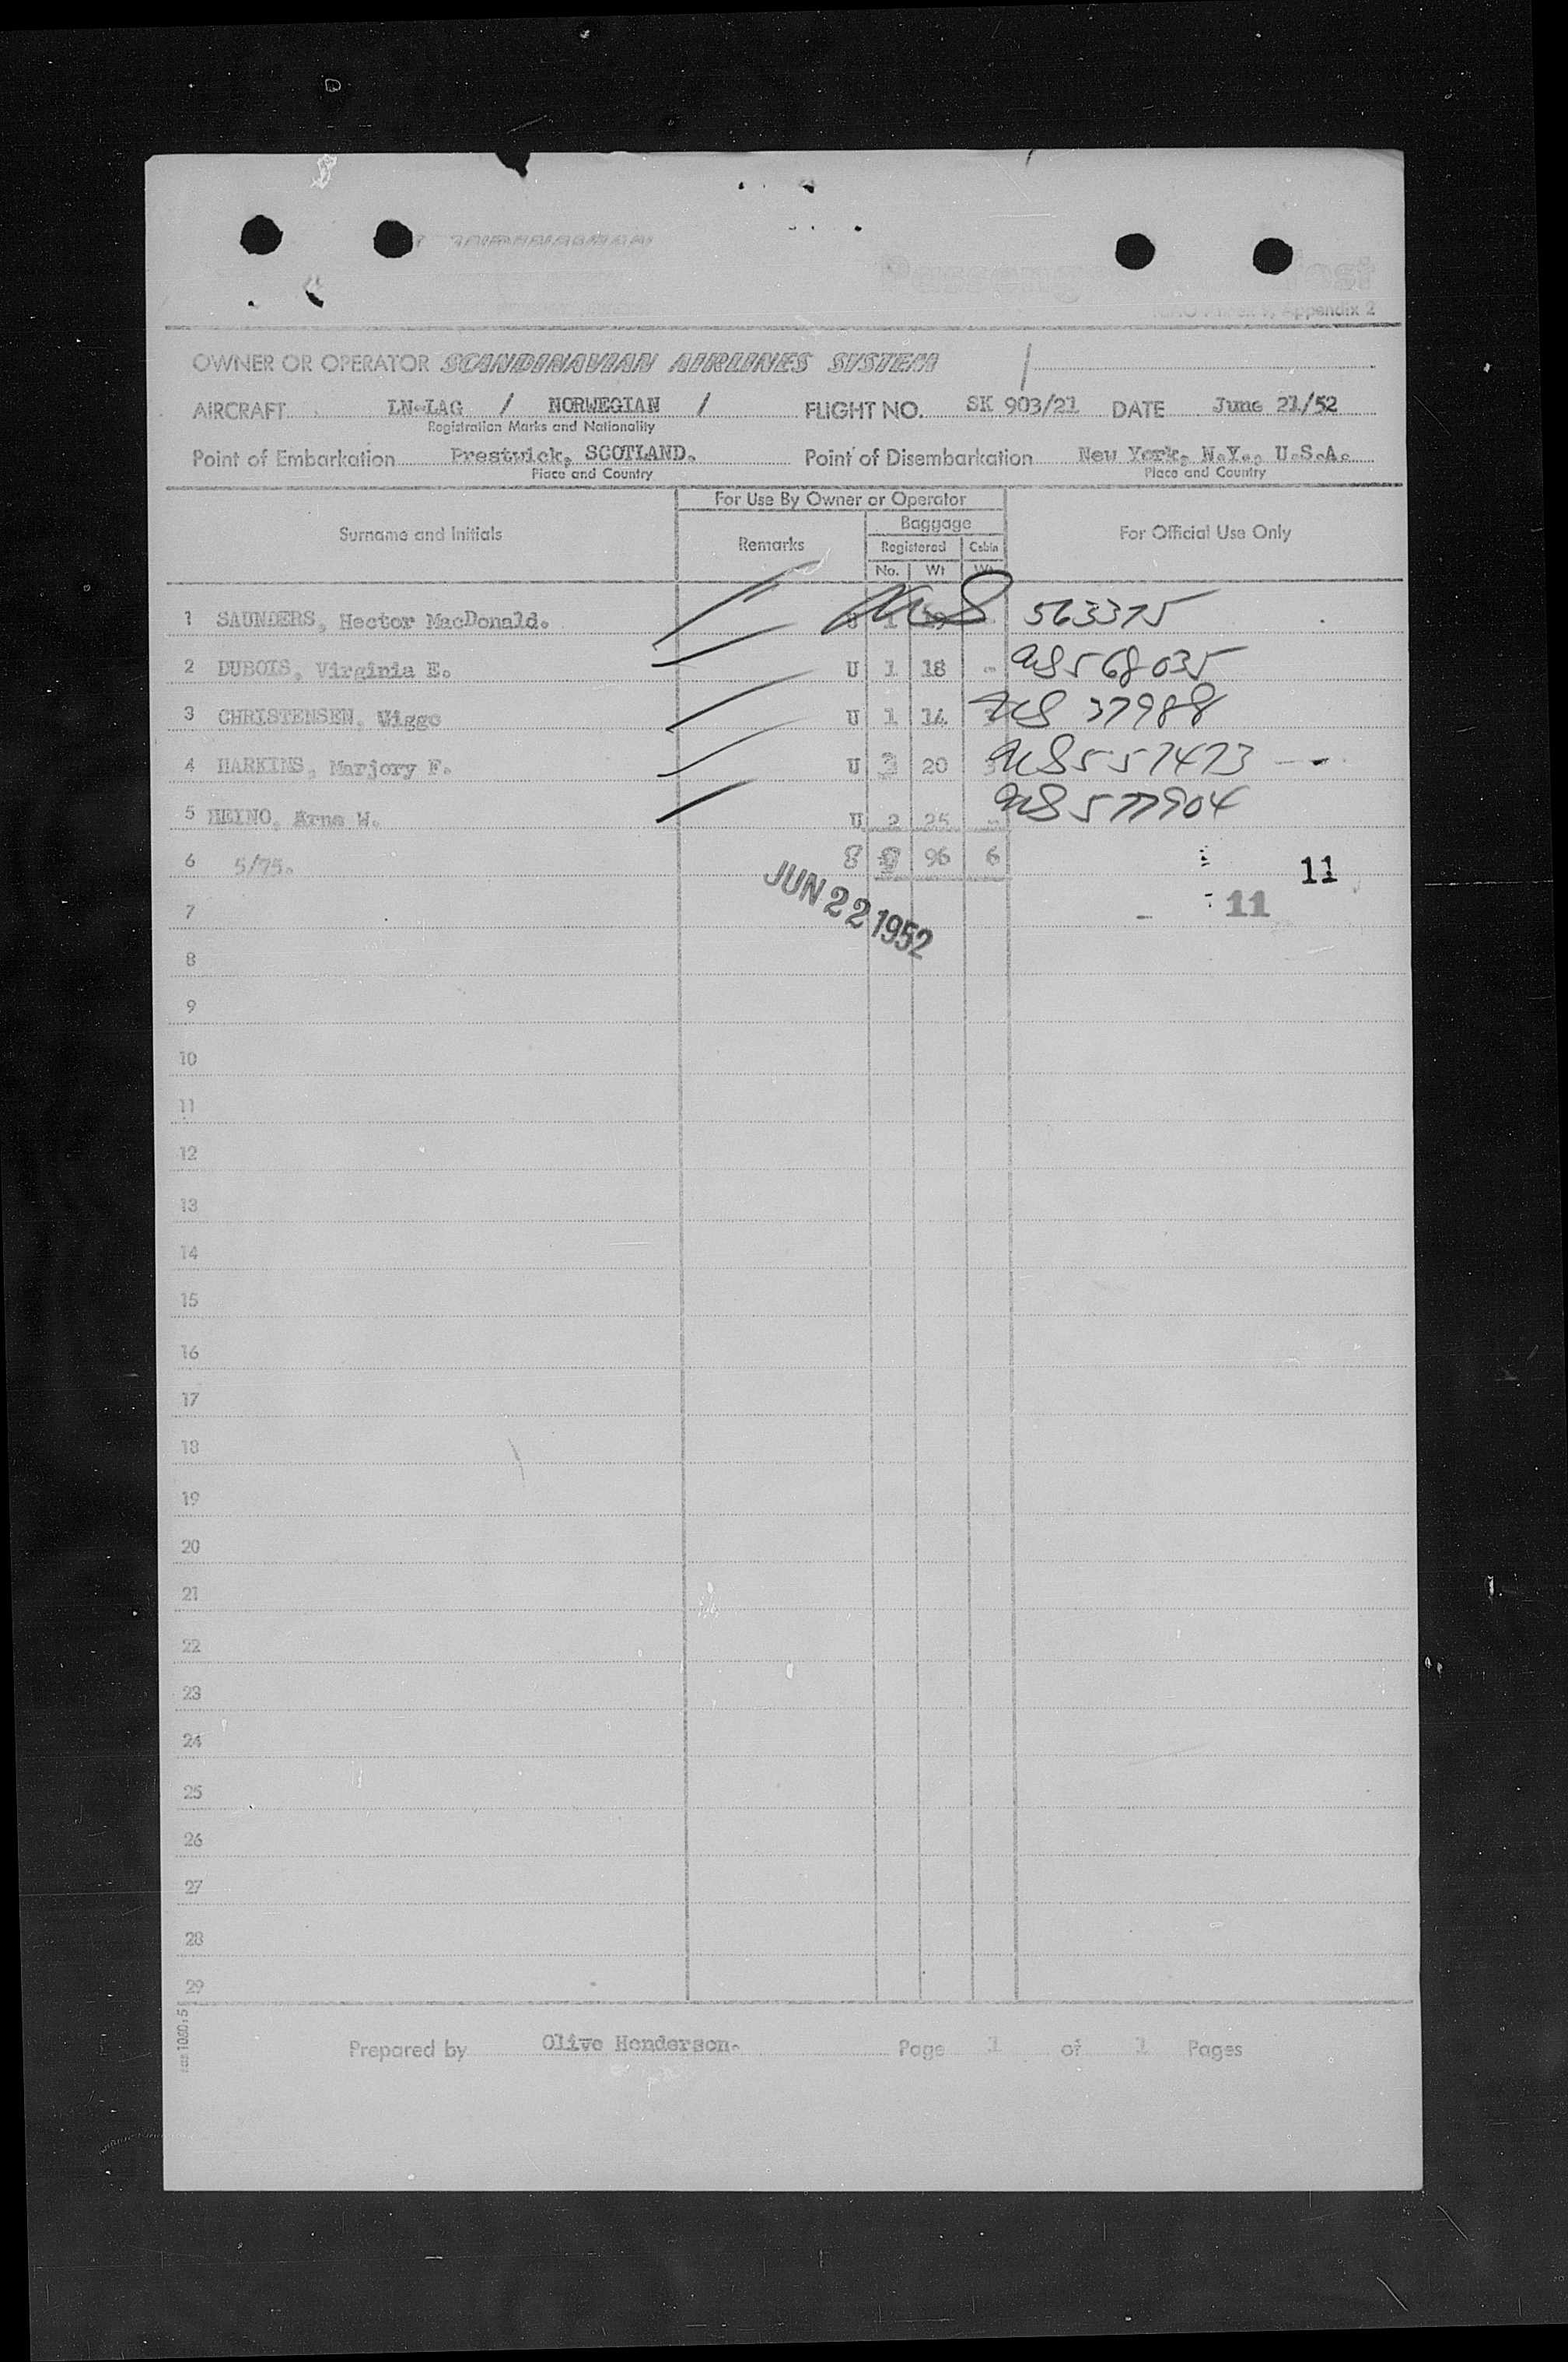 Appendix 2
OWNER OR OPERATOR SCANDINAVIAN AIRLINES SYSTEM
AIRCRAFT LN-LAG / NORWEGIAN / FLIGHT NO. SK 903/21 DATE June 21/52
Registration Marks and Nationality
Point of Embarkation Prestwick, SCOTLAND. Point of Disembarkation New York, N.Y., U.S.A.
Place and Country Place and Country
For Use By Owner or Operator
Surname and Initials Remarks Baggage For Official Use Only
Registered Cabin
No. Wt Wt
1 SAUNDERS, Hector MacDonald. 1 563375
2 DUBOIS, Virginia E. U 1 18 - 568035
3 CHRISTENSEN, Viggo U 1 14 37988
4 HARKINS, Marjory F. U 3 20 3 557473
5 HEINO, Arne W. U 2 25 - 577904
6 5/75. 8 8 96 6 11
JUN 22 1952
7 11
8
9
10
11
12
13
14
15
16
17
18
19
20
21
22
23
24
25
26
27
28
29
Prepared by Olive Henderson. Page 1 of 1 Pages